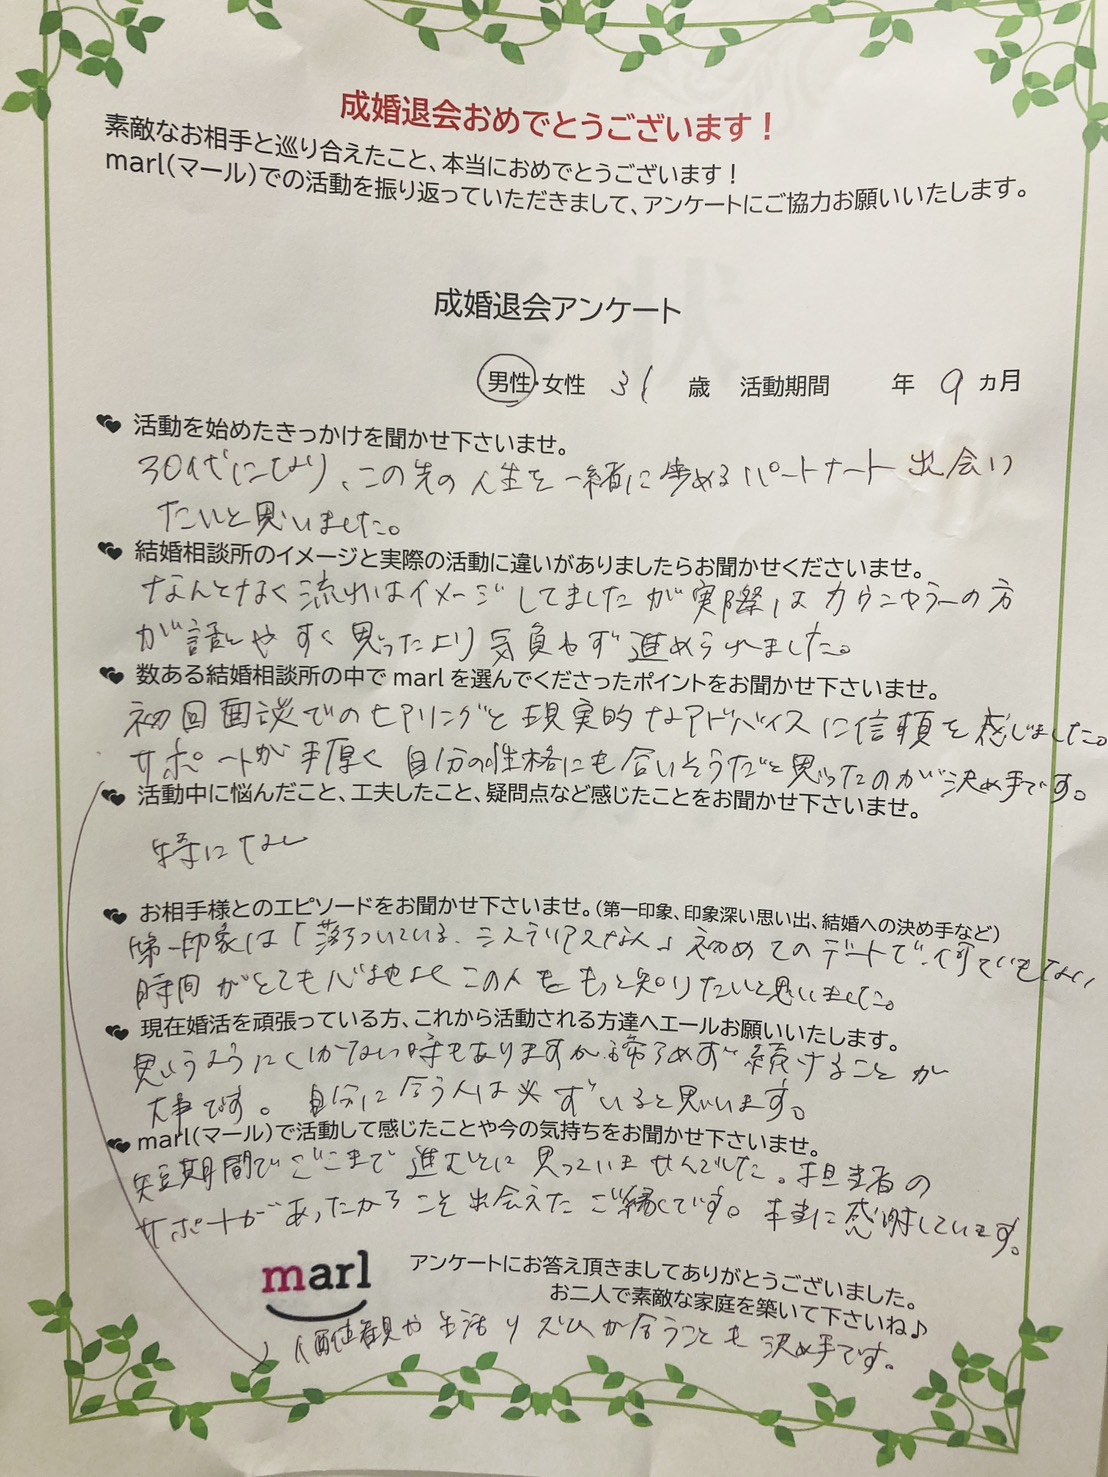 成婚退会おめでとうございます！
素敵なお相手と巡り合えたこと、本当におめでとうございます！
marl（マール）での活動を振り返っていただきまして、アンケートにご協力お願いいたします。
成婚退会アンケート
男性・女性 31 歳 活動期間 年 9 ヵ月
活動を始めたきっかけを聞かせ下さいませ。
30代になり、この先の人生を一緒に歩めるパートナーと出会い
たいと思いました。
結婚相談所のイメージと実際の活動に違いがありましたらお聞かせくださいませ。
なんとなく流れはイメージしてましたが実際はカウンセラーの方
が話しやすく思ったより気負わず進められました。
数ある結婚相談所の中でmarlを選んでくださったポイントをお聞かせ下さいませ。
初回面談でのヒアリングと現実的なアドバイスに信頼を感じました。
サポートが手厚く自分の性格にも合いそうだと思ったのが決め手です。
活動中に悩んだこと、工夫したこと、疑問点など感じたことをお聞かせ下さいませ。
特になし
お相手様とのエピソードをお聞かせ下さいませ。（第一印象、印象深い思い出、結婚への決め手など）
第一印象は「落ちついている、ミステリアスな人」初めてのデートで、何でもない
時間がとても心地よくこの人をもっと知りたいと思いました。
現在婚活を頑張っている方、これから活動される方達へエールお願いいたします。
思うようにいかない時もありますが諦らめず続けることが
大事です。自分に合う人は必ずいると思います。
marl（マール）で活動して感じたことや今の気持ちをお聞かせ下さいませ。
短期間でここまで進むとは思っていませんでした。担当者の
サポートがあったからこそ出会えたご縁です。本当に感謝しています。
marl
アンケートにお答え頂きましてありがとうございました。
お二人で素敵な家庭を築いて下さいね♪
価値観や生活リズムが合うことも決め手です。